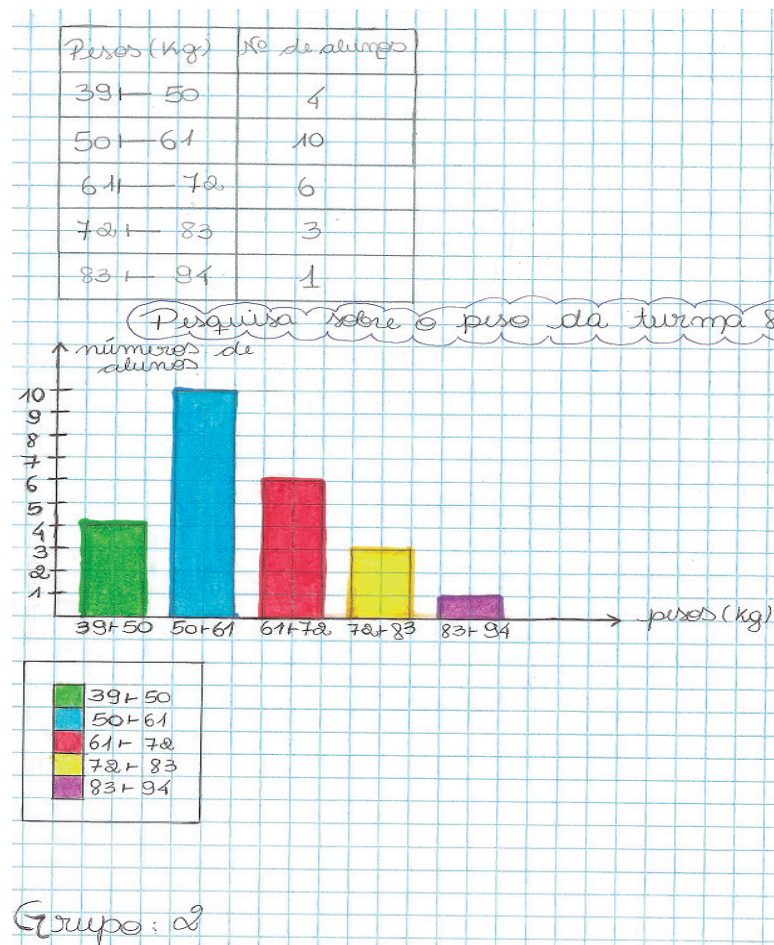 Pesos (Kg) Nº de alunos
39 ⊢ 50 4
50 ⊢ 61 10
61 ⊢ 72 6
72 ⊢ 83 3
83 ⊢ 94 1
Pesquisa sobre o peso da turma 8
números de
alunos
10
9
8
7
6
5
4
3
2
1
39⊢50 50⊢61 61⊢72 72⊢83 83⊢94 pesos (Kg)
39⊢50
50⊢61
61⊢72
72⊢83
83⊢94
Grupo: 2